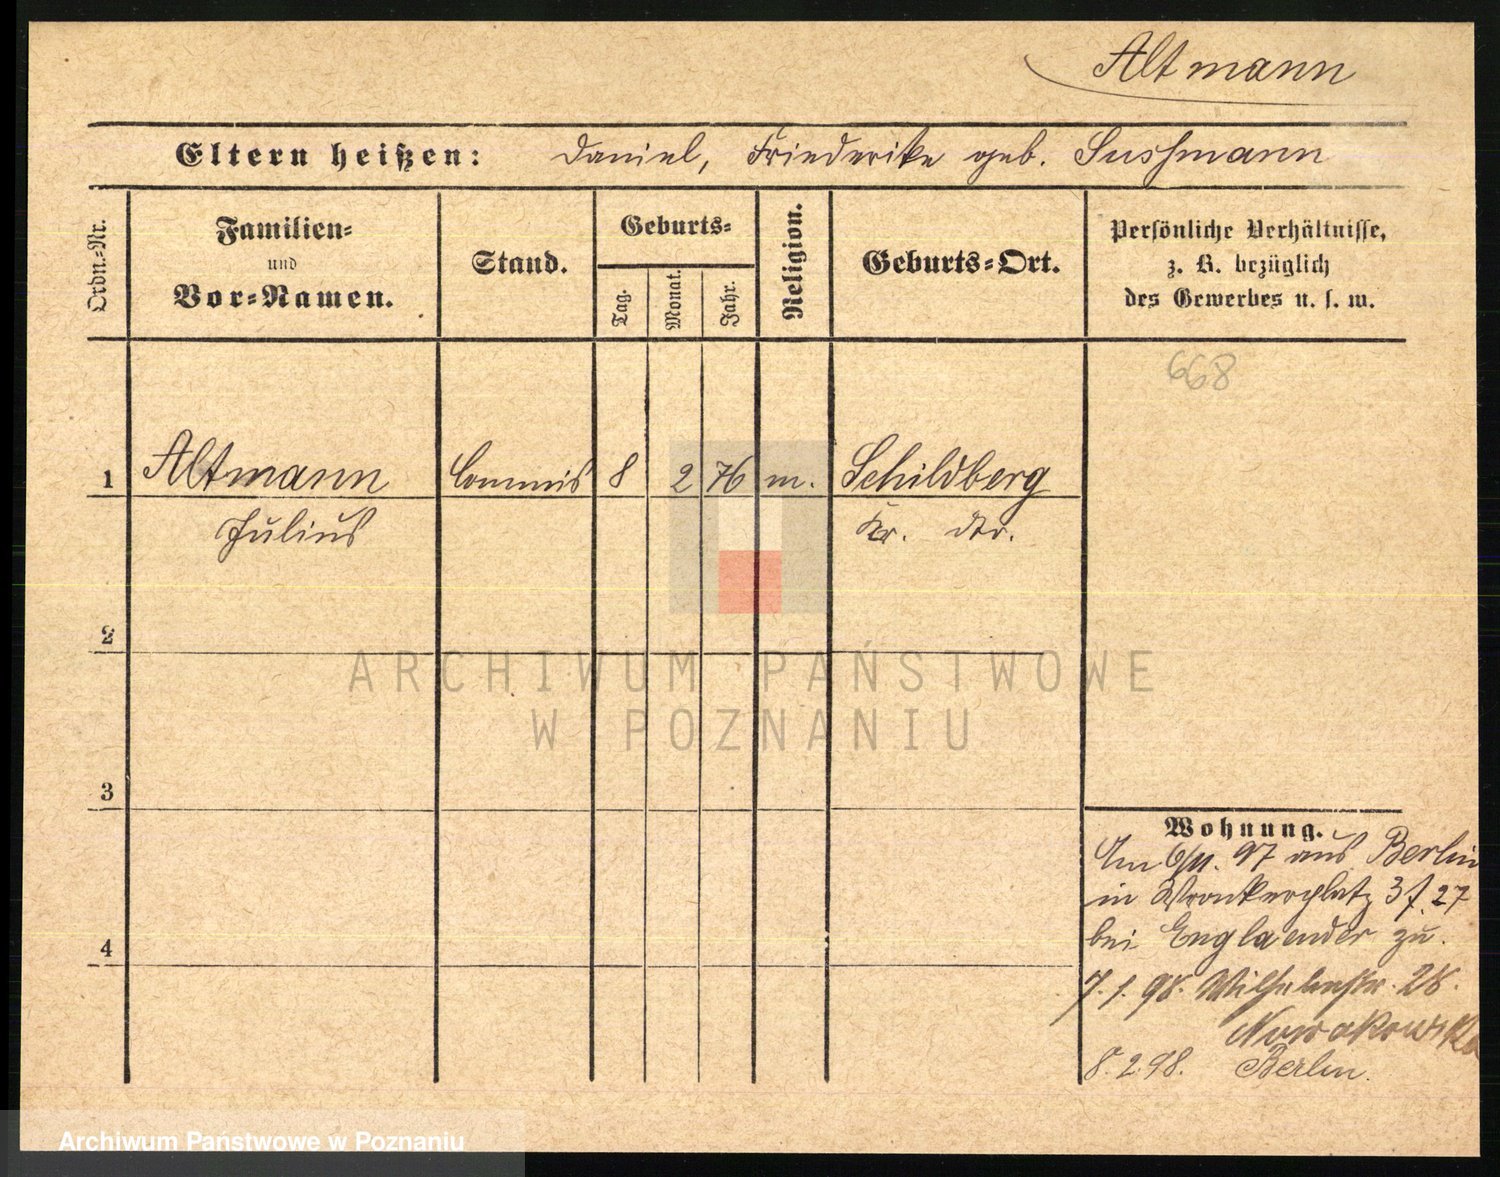 Altmann
Eltern heißen: Daniel, Friederike geb. Sussmann
Ordn.-Nr.
Familien-
und
Vor-Namen.
Stand.
Geburts-
Tag.
Monat.
Jahr.
Religion.
Geburts-Ort.
Persönliche Verhältnisse,
z. B. bezüglich
des Gewerbes u. s. w.
668
1 Altmann Commis 8 2 76 m. Schildberg
Julius Kr. dto.
2
ARCHIWUM PAŃSTWOWE
W POZNANIU
3
Wohnung.
Am 6/11. 97 aus Berlin
in Wronkerplatz 3 f. 27
bei Englaender zu.
4
7. 1. 98. Wilhelmstr. 28.
Nowakowska
8. 2. 98. Berlin.
Archiwum Państwowe w Poznaniu